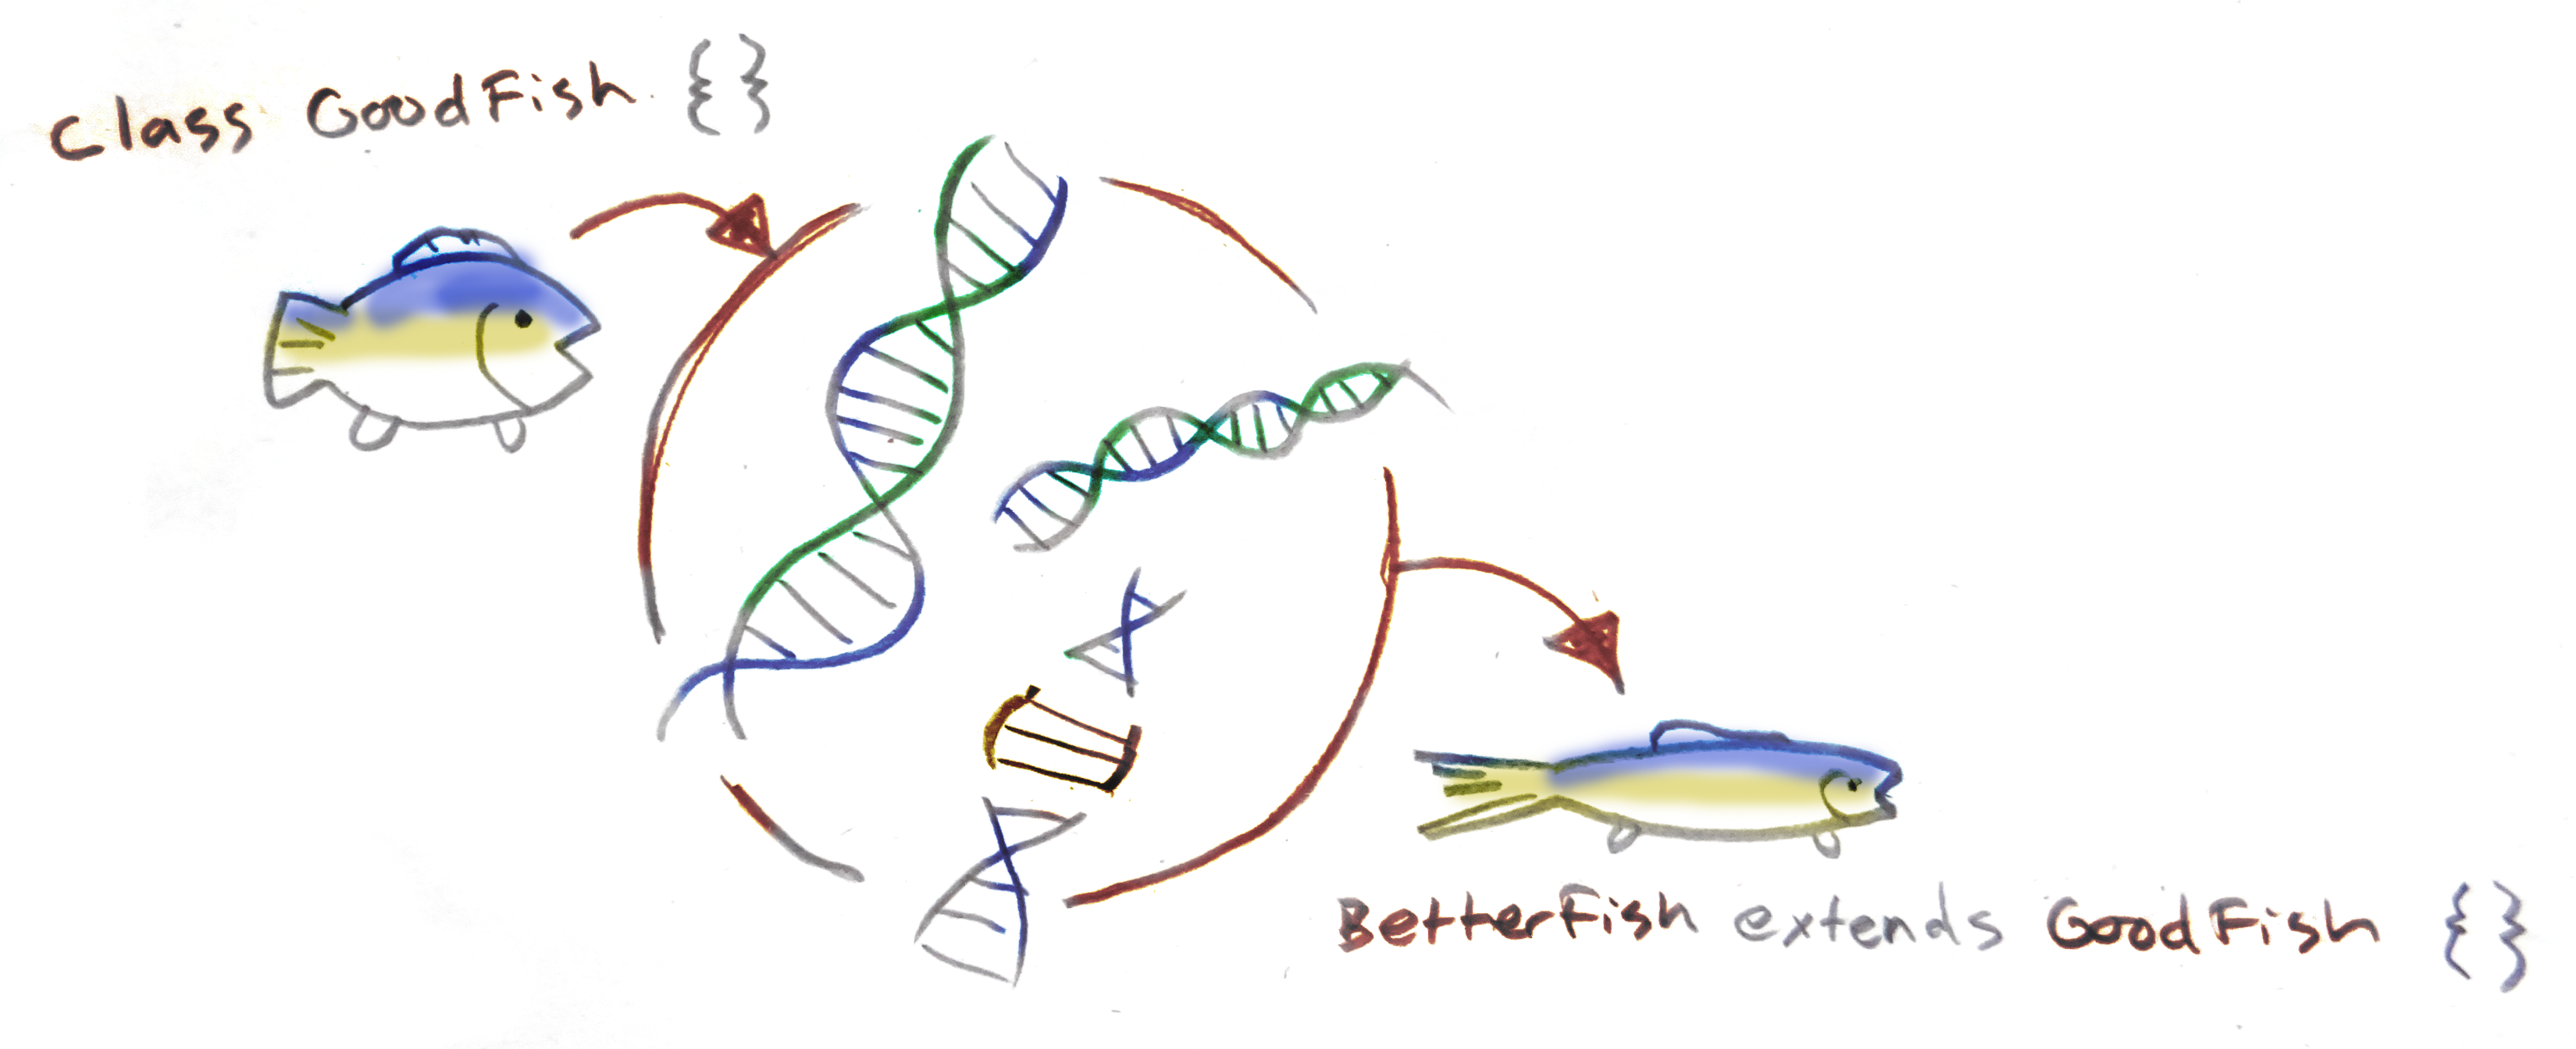 Class GoodFish {}
BetterFish extends GoodFish {}